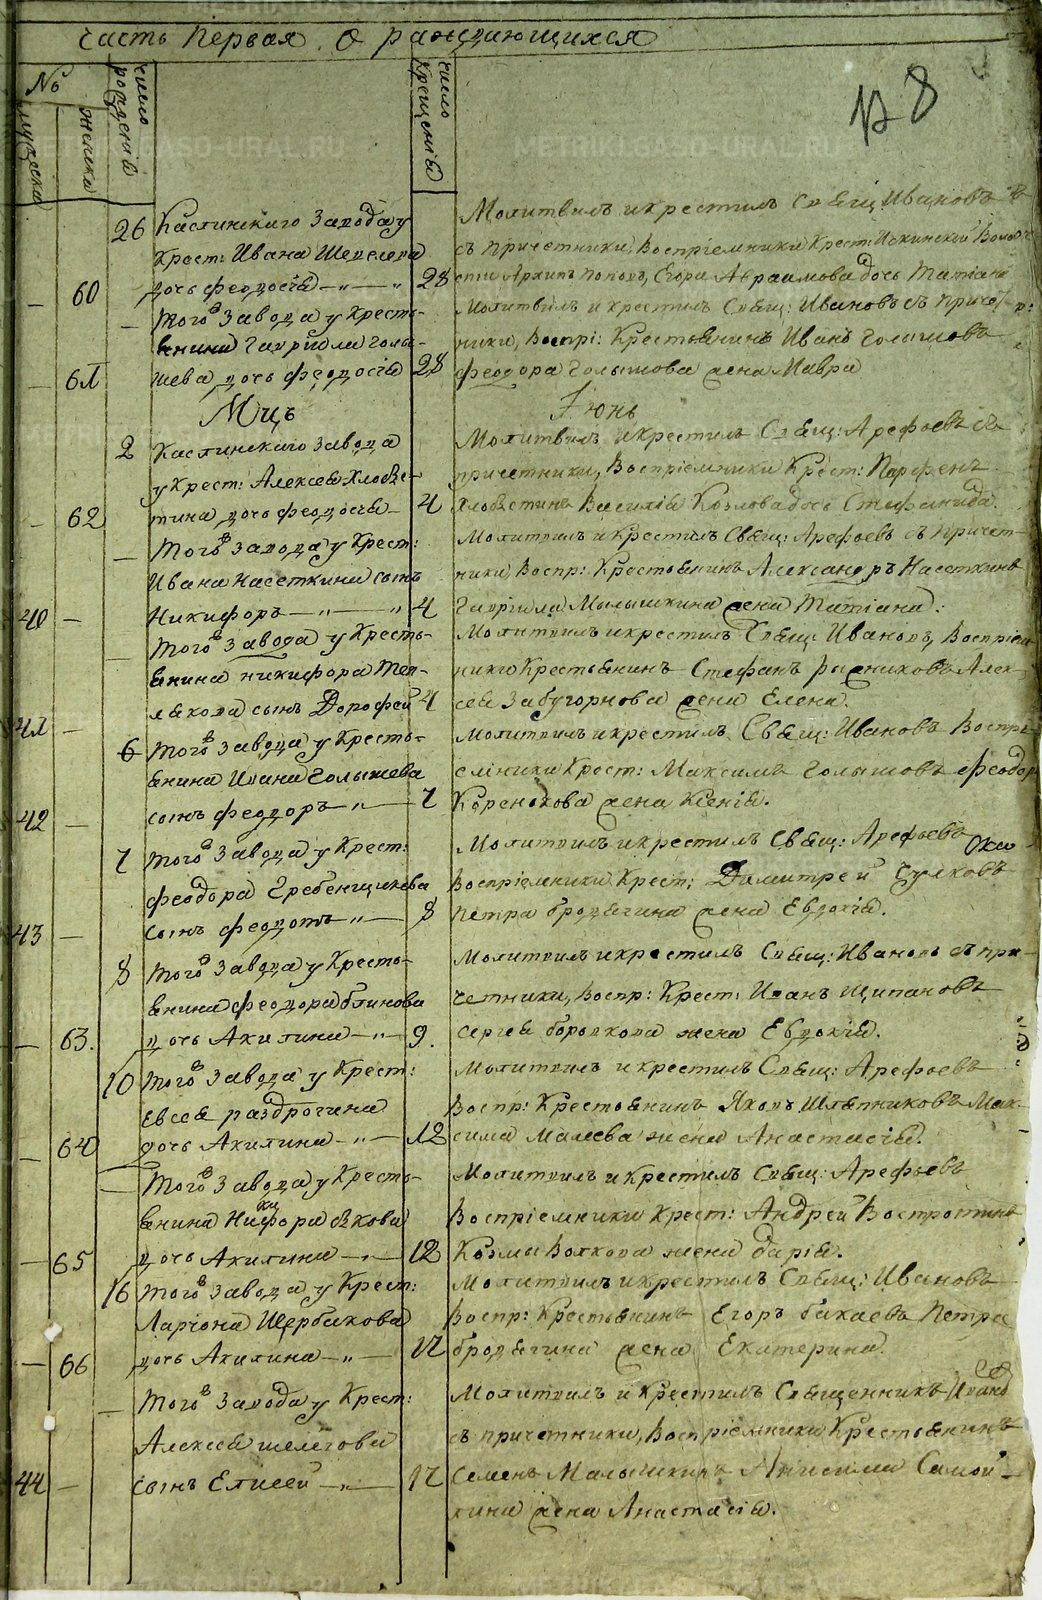 часть первая о раждающихся
№
мужеска
женска
число рождений
число крещений
26 Каслинскаго завода у
крест: Ивана Шепелева
60 дочь феодосія 28
Молитвилъ и крестилъ Свящ: Ивановъ
съ причетники, Воспріемники Крест:
Архипъ поповъ, Егора Авраамова дочь Татіана
того завода у кресть-
янина Гавріила голы-
61 шева дочь феодосія 28
Молитвилъ и крестилъ Свящ: Ивановъ съ приче-
ники, Воспрі: Крестьянинъ Иванъ голышовъ
феодора голышова жена Мавра
Мцъ Іюнь
2 Каслинскаго завода
у крест: Алексея Хлобы-
62 стина дочь феодосія 4
Молитвилъ и крестилъ Свящ: Арефьевъ съ
причетники, Воспріемники Крест: Парфенъ
Василія Козлова дочь Стефанида.
того завода у крест:
Ивана Насеткина сынъ
40 Никифоръ 4
Молитвилъ и крестилъ Свящ: Арефьевъ съ причет-
ники, Воспр: Крестьянинъ Александръ Насеткинъ
Гавріила Малышкина жена Татіана.
того завода у кресть-
янина никифора Теп-
41 лякова сынъ Дорофей 4
Молитвилъ и крестилъ Свящ: Ивановъ, Воспріем-
ники Крестьянинъ Стефанъ Рыжниковъ Алек-
сея Забугорнова жена Елена.
6 того завода у кресть-
янина Ивана Голышева
42 сынъ феодоръ 7
Молитвилъ и крестилъ Свящ: Ивановъ Воспрі-
емники Крест: Максимъ голышовъ феодор
жена Ксенія.
7 того завода у крест:
феодора Гребенщикова
43 сынъ феодотъ 8
Молитвилъ и крестилъ Свящ: Арефьевъ
Воспріемники Крест: Димитрей Чулковъ
Петра бродягина жена Евдокія.
8 того завода у кресть-
янина феодора блинова
63. дочь Акилина 9.
Молитвилъ и крестилъ Свящ: Ивановъ съ при-
четники, Воспр: Крест: Иванъ Щипановъ
Сергея бородкова жена Евдокія.
10 того завода у крест:
Евсея раздрогина
64 дочь Акилина 12
Молитвилъ и крестилъ Свящ: Арефьевъ
Воспр: Крестьянинъ Яковъ Шляпниковъ Мак-
сима Малева жена Анастасія.
того завода у кресть-
янина Никифора
65 дочь Акилина 12
Молитвилъ и крестилъ Свящ: Арефьевъ
Воспріемники крест: Андрей Востротинъ
Козмы Волкова жена дарія.
16 того завода у Крест:
Ларіона Щербакова
66 дочь Акилина 17
Молитвилъ и крестилъ Свящ: Ивановъ
Воспр: Крестьянинъ Егоръ бакаевъ Петра
бродягина жена Екатерина.
того завода у Крест:
Алексея шелегова
44 сынъ Елисей 17
Молитвилъ и Крестилъ Священникъ Иванов
съ причетники, Воспріемники Крестьянинъ
Семенъ Малышкинъ Анисима Самой-
лина жена Анастасія.